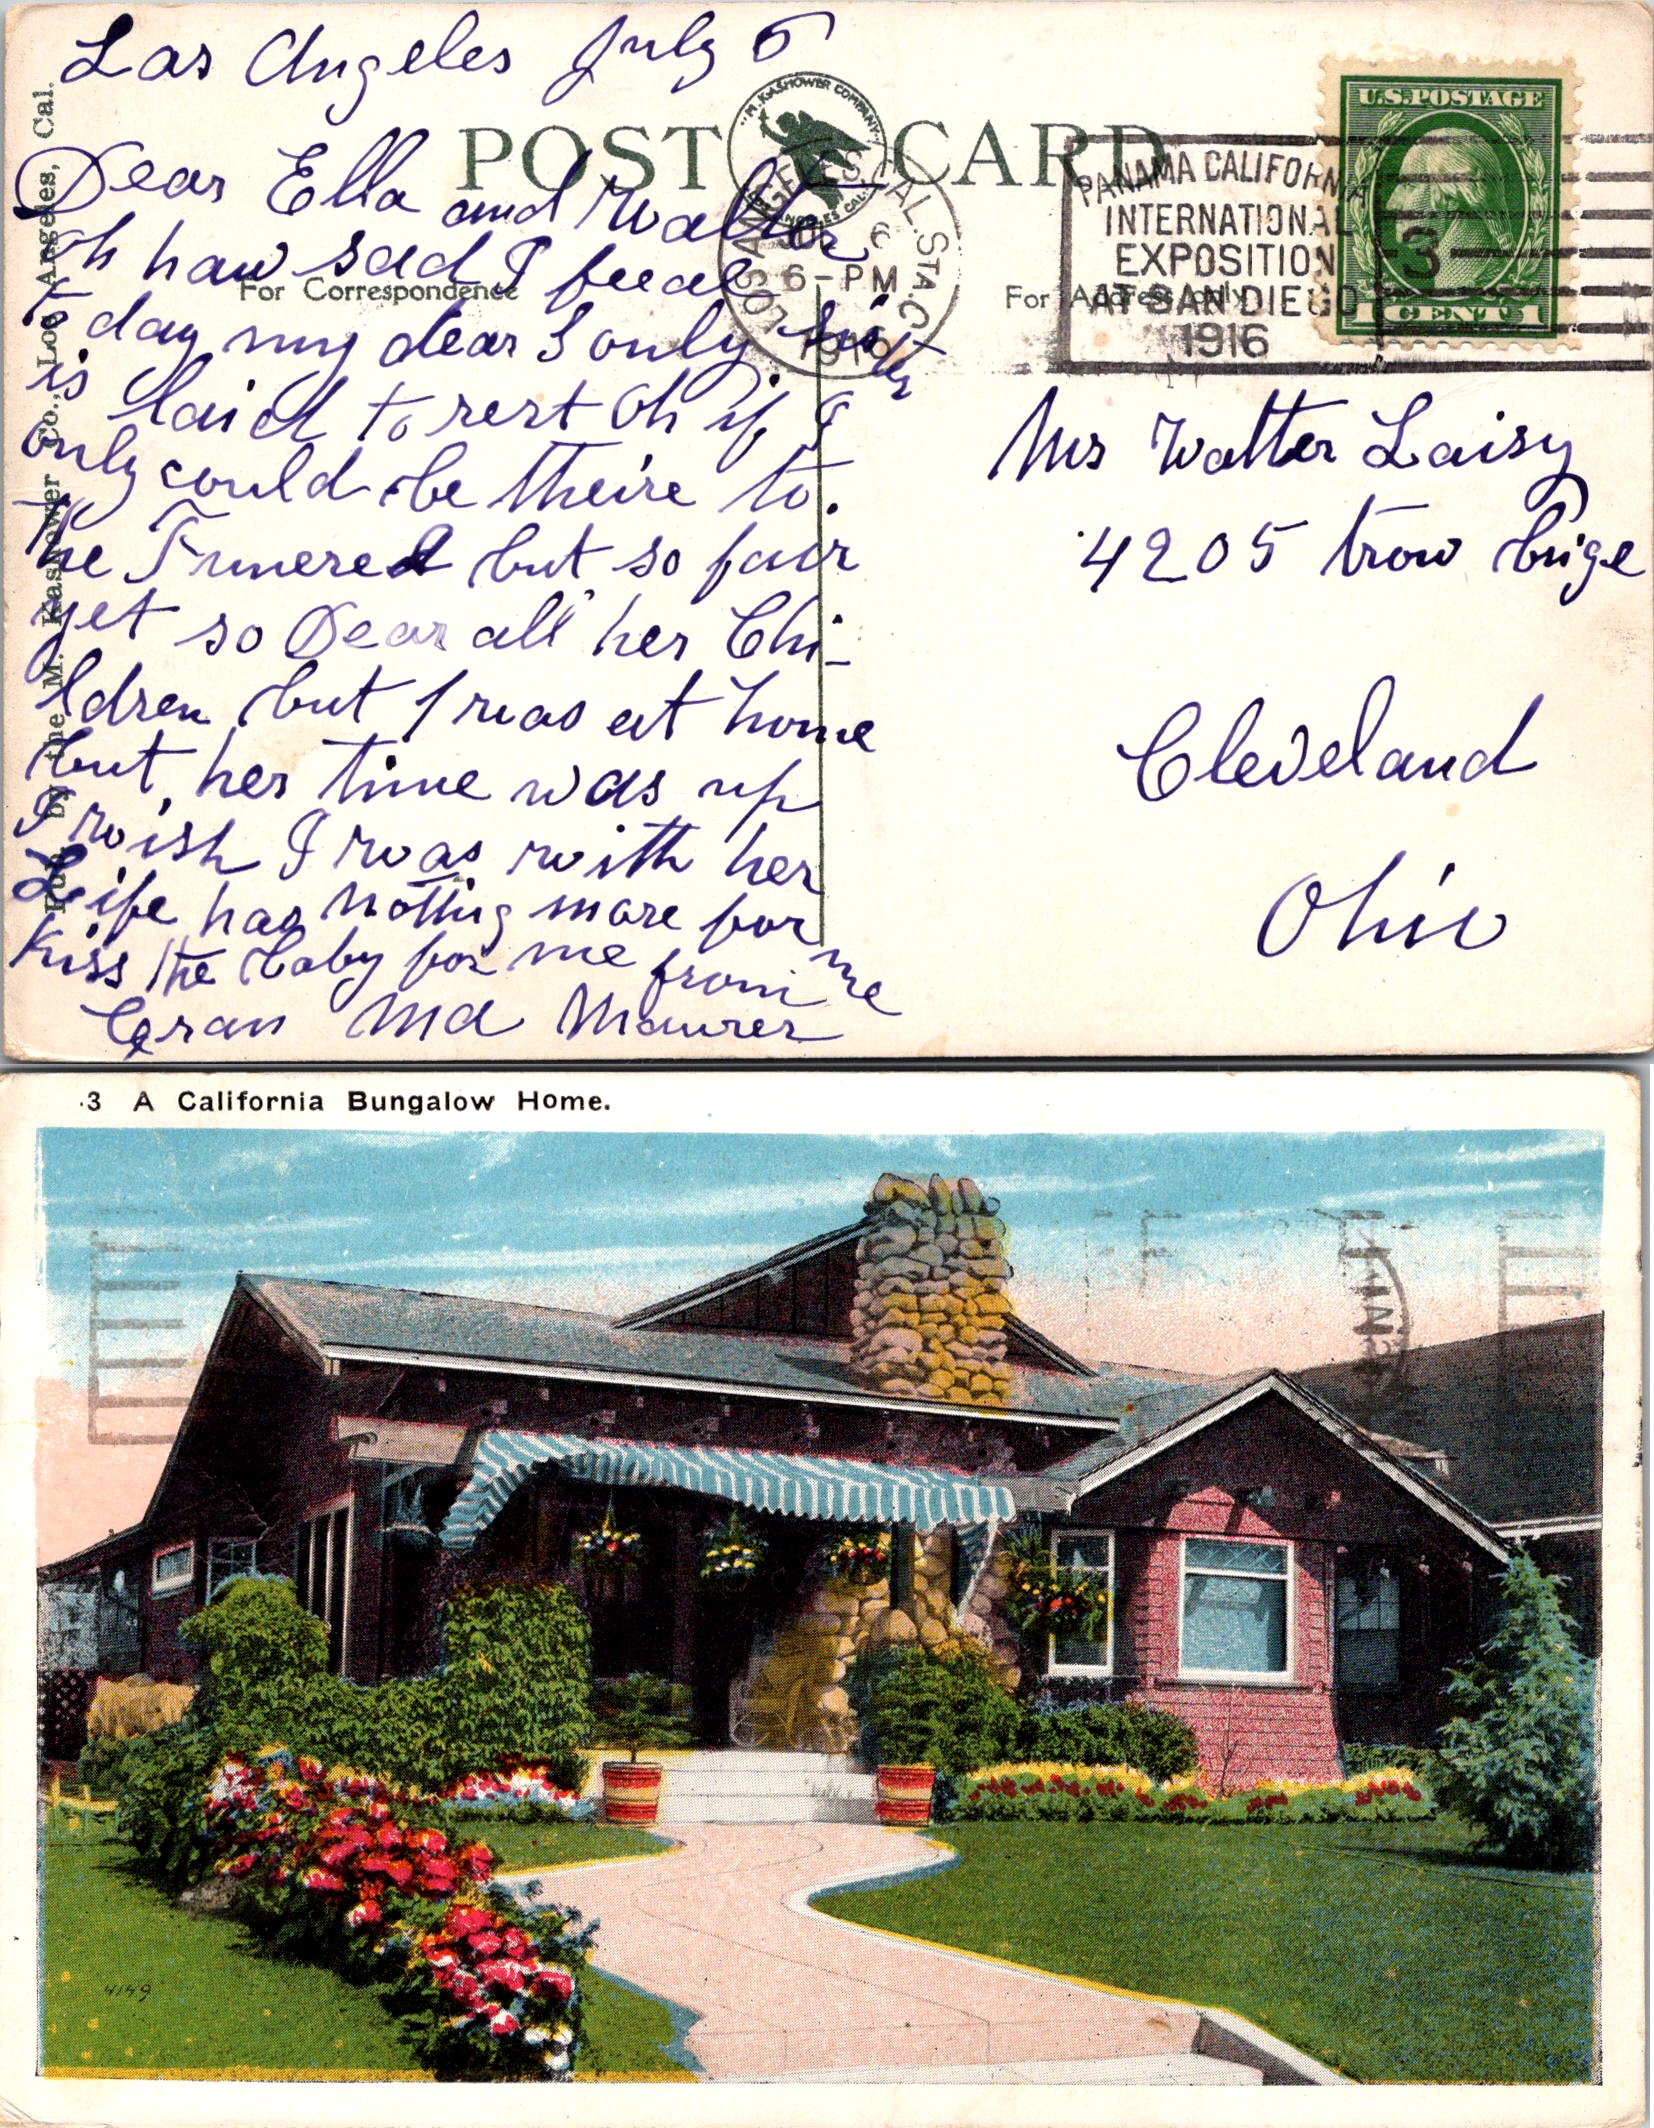 Las Angeles July 5
POST CARD
"M. KASHOWER COMPANY"
LOS ANGELES CAL.
Dear Ella and Walter
oh haw sad I feeal
For Correspondence
to day my dear S only sister
is laid to rest Oh if I
only could be theire to.
the Funerel but so fair
yet so Dear all her Chi-
ldren but I was at home
but her time was up
I wish I was with her
Life has nothing more for me
Kiss the baby for me from
Gran Ma Maurer
Pub. by the M. Kashower Co., Los Angeles, Cal.
LOS ANGELES, CAL. STA. C
JUL 6
6-PM
1916
PANAMA CALIFORNIA
INTERNATIONAL
EXPOSITION
AT SAN DIEGO
1916
3
U.S. POSTAGE
1 CENT 1
For Address only
Mrs Walter Laisy
4205 trow brige
Cleveland
Ohio
3 A California Bungalow Home.
4149